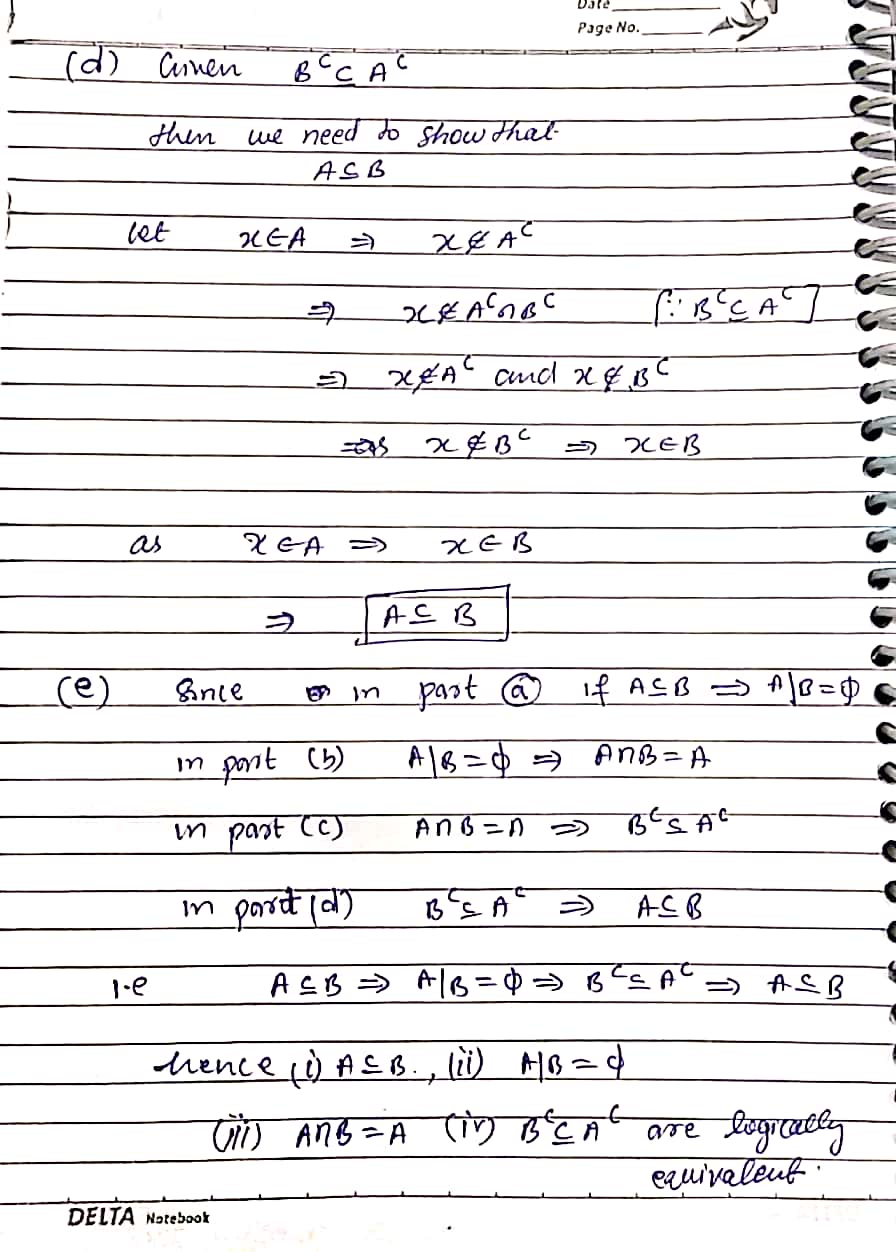 Date
Page No.
(d) Given B^C ⊆ A^C
then we need to show that
A ⊆ B
let x∈A ⇒ x∉A^C
⇒ x∉A^C∩B^C [∵ B^C ⊆ A^C]
⇒ x∉A^C and x∉B^C
as x∉B^C ⇒ x∈B
as x∈A ⇒ x∈B
⇒ A ⊆ B
(e) Since in part ⓐ if A⊆B ⇒ A|B=ϕ
in part (b) A|B=ϕ ⇒ A∩B=A
in part (c) A∩B=A ⇒ B^C⊆A^C
in part (d) B^C⊆A^C ⇒ A⊆B
i.e A⊆B ⇒ A|B=ϕ ⇒ B^C⊆A^C ⇒ A⊆B
hence (i) A⊆B., (ii) A|B=ϕ
(iii) A∩B=A (iv) B^C⊆A^C are logically
equivalent.
DELTA Notebook